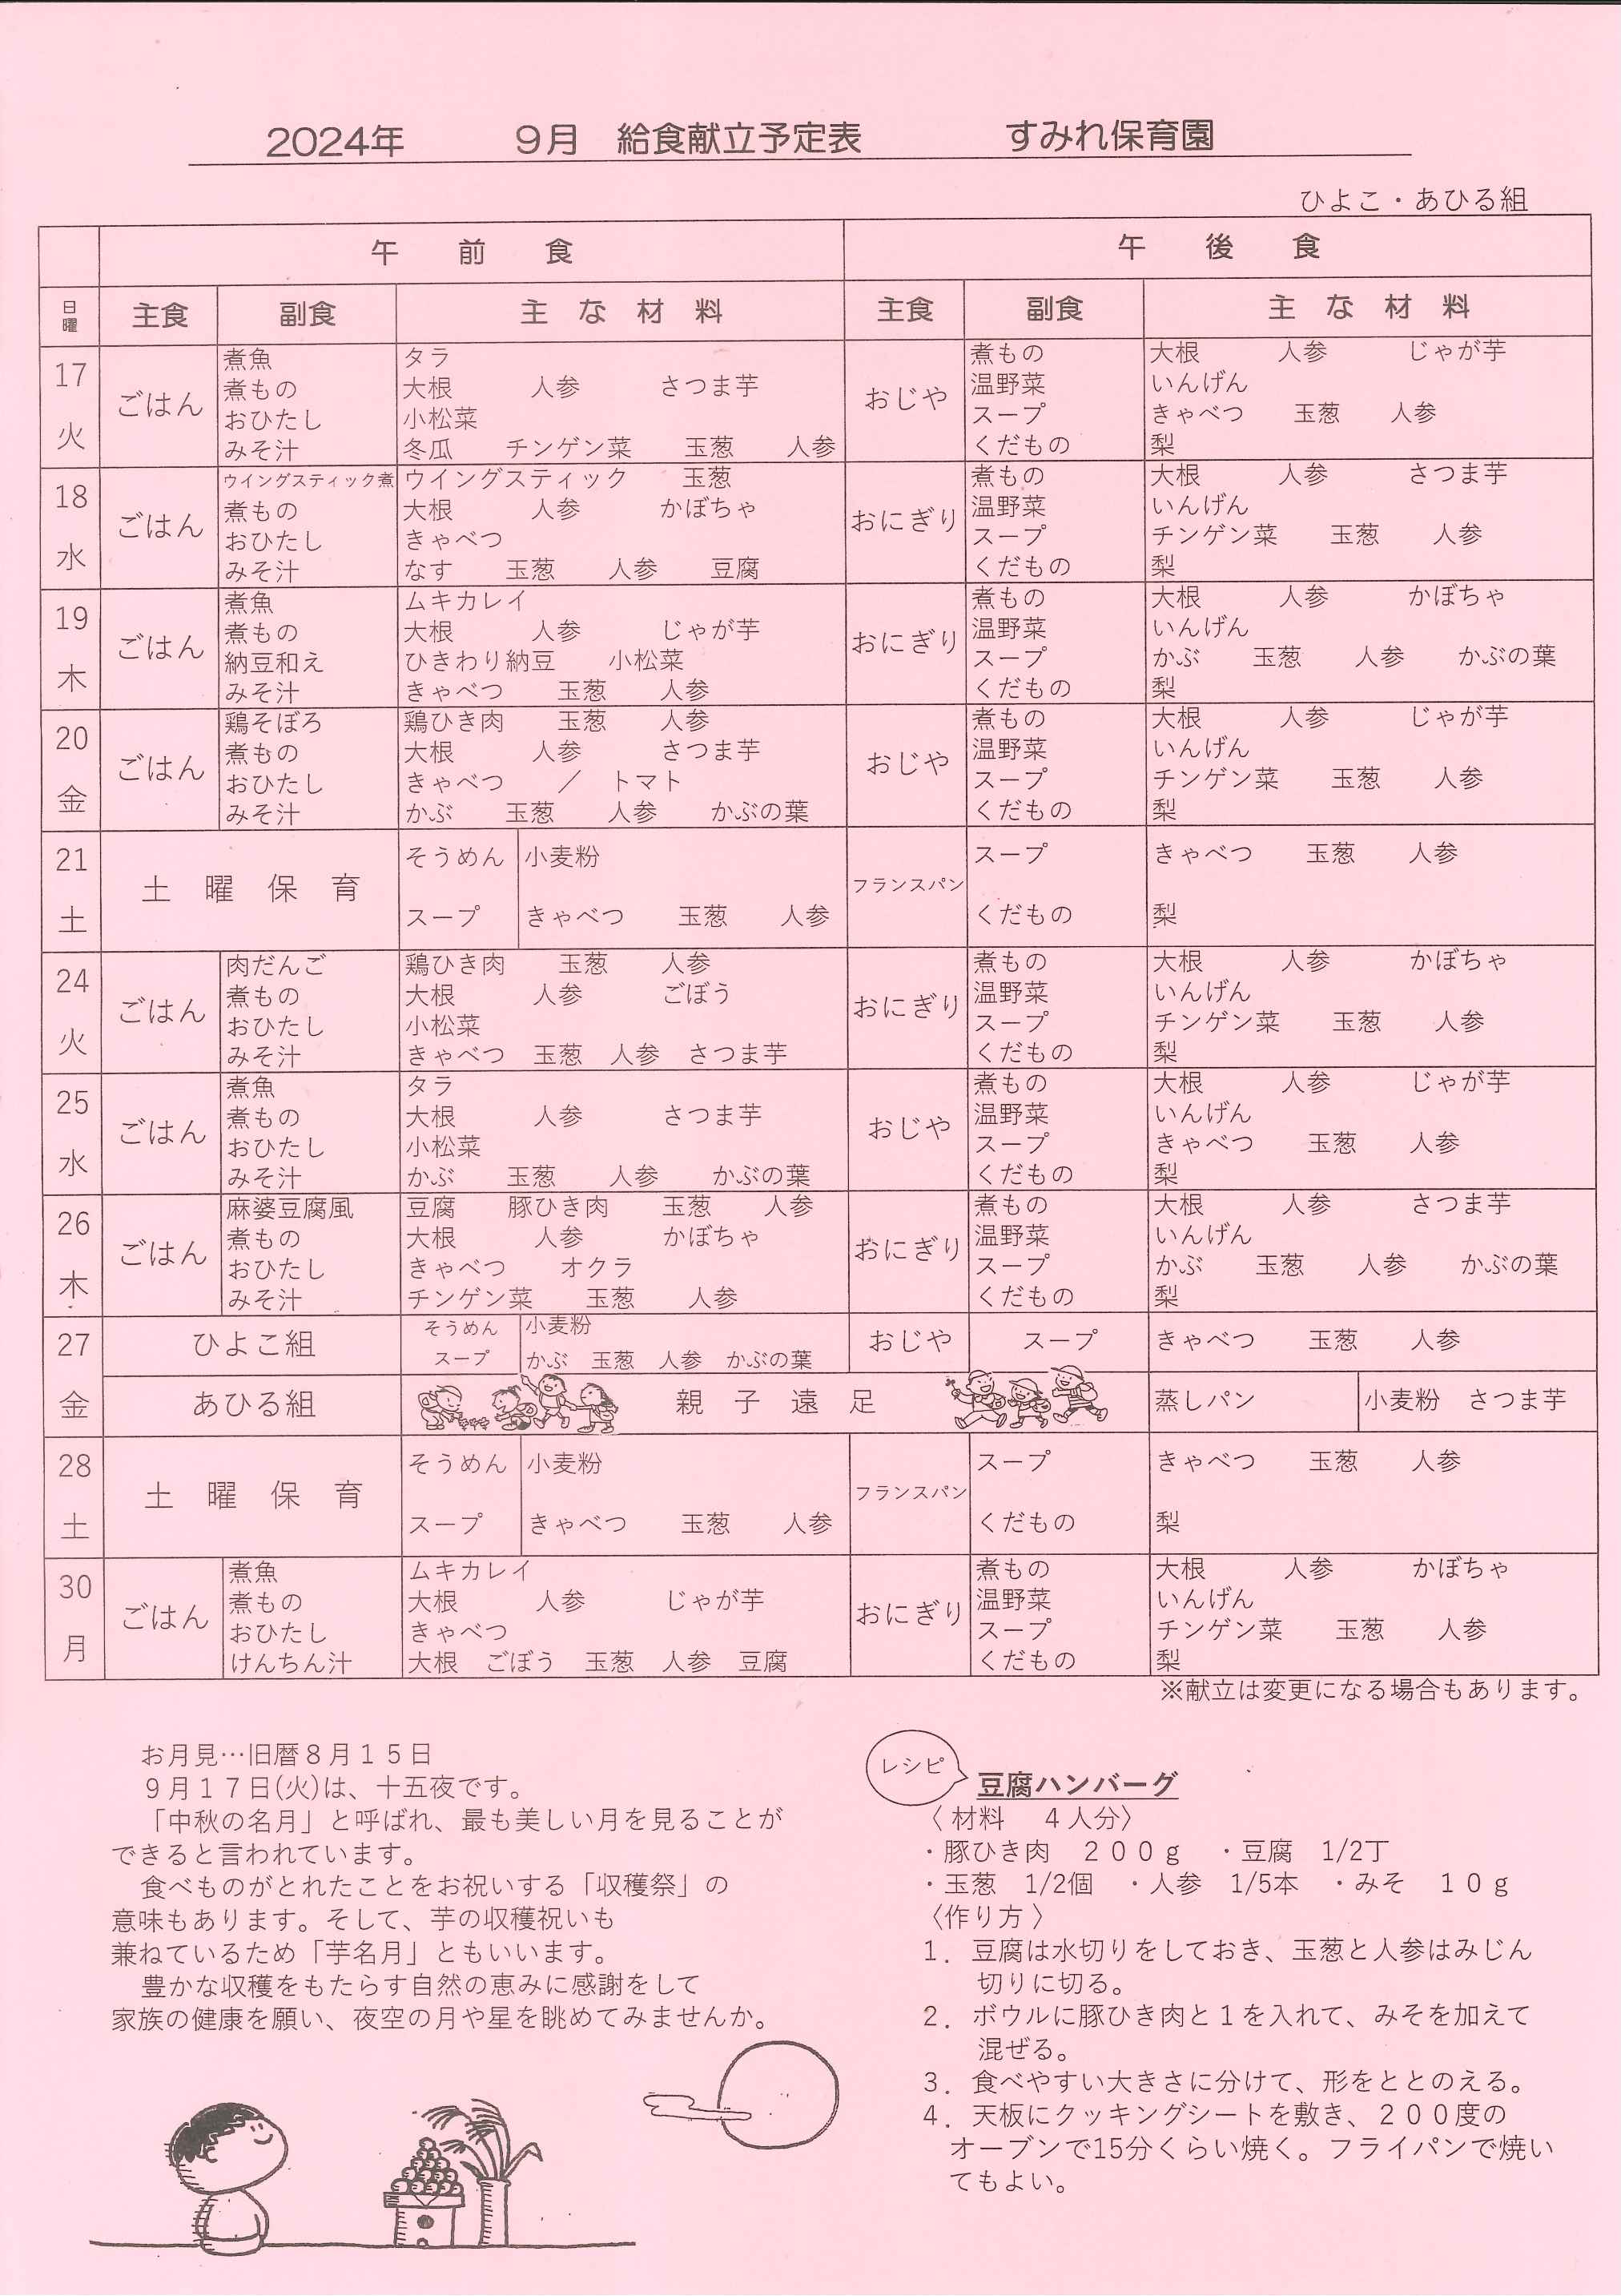 2024年 9月 給食献立予定表 すみれ保育園
ひよこ・あひる組
午前食 午後食
日曜 主食 副食 主な材料 主食 副食 主な材料
17 火 ごはん おじや
煮魚 タラ 煮もの 大根 人参 じゃが芋
煮もの 大根 人参 さつま芋 温野菜 いんげん
おひたし 小松菜 スープ きゃべつ 玉葱 人参
みそ汁 冬瓜 チンゲン菜 玉葱 人参 くだもの 梨
18 水 ごはん おにぎり
ウイングスティック煮 ウイングスティック 玉葱 煮もの 大根 人参 さつま芋
煮もの 大根 人参 かぼちゃ 温野菜 いんげん
おひたし きゃべつ スープ チンゲン菜 玉葱 人参
みそ汁 なす 玉葱 人参 豆腐 くだもの 梨
19 木 ごはん おにぎり
煮魚 ムキカレイ 煮もの 大根 人参 かぼちゃ
煮もの 大根 人参 じゃが芋 温野菜 いんげん
納豆和え ひきわり納豆 小松菜 スープ かぶ 玉葱 人参 かぶの葉
みそ汁 きゃべつ 玉葱 人参 くだもの 梨
20 金 ごはん おじや
鶏そぼろ 鶏ひき肉 玉葱 人参 煮もの 大根 人参 じゃが芋
煮もの 大根 人参 さつま芋 温野菜 いんげん
おひたし きゃべつ / トマト スープ チンゲン菜 玉葱 人参
みそ汁 かぶ 玉葱 人参 かぶの葉 くだもの 梨
21 土 土曜保育 フランスパン
そうめん 小麦粉 スープ きゃべつ 玉葱 人参
スープ きゃべつ 玉葱 人参 くだもの 梨
24 火 ごはん おにぎり
肉だんご 鶏ひき肉 玉葱 人参 煮もの 大根 人参 かぼちゃ
煮もの 大根 人参 ごぼう 温野菜 いんげん
おひたし 小松菜 スープ チンゲン菜 玉葱 人参
みそ汁 きゃべつ 玉葱 人参 さつま芋 くだもの 梨
25 水 ごはん おじや
煮魚 タラ 煮もの 大根 人参 じゃが芋
煮もの 大根 人参 さつま芋 温野菜 いんげん
おひたし 小松菜 スープ きゃべつ 玉葱 人参
みそ汁 かぶ 玉葱 人参 かぶの葉 くだもの 梨
26 木 ごはん おにぎり
麻婆豆腐風 豆腐 豚ひき肉 玉葱 人参 煮もの 大根 人参 さつま芋
煮もの 大根 人参 かぼちゃ 温野菜 いんげん
おひたし きゃべつ オクラ スープ かぶ 玉葱 人参 かぶの葉
みそ汁 チンゲン菜 玉葱 人参 くだもの 梨
27 金
ひよこ組 そうめん 小麦粉 おじや スープ きゃべつ 玉葱 人参
スープ かぶ 玉葱 人参 かぶの葉
あひる組 親子遠足 蒸しパン 小麦粉 さつま芋
28 土 土曜保育 フランスパン
そうめん 小麦粉 スープ きゃべつ 玉葱 人参
スープ きゃべつ 玉葱 人参 くだもの 梨
30 月 ごはん おにぎり
煮魚 ムキカレイ 煮もの 大根 人参 かぼちゃ
煮もの 大根 人参 じゃが芋 温野菜 いんげん
おひたし きゃべつ スープ チンゲン菜 玉葱 人参
けんちん汁 大根 ごぼう 玉葱 人参 豆腐 くだもの 梨
※献立は変更になる場合もあります。
お月見…旧暦8月15日
9月17日(火)は、十五夜です。
「中秋の名月」と呼ばれ、最も美しい月を見ることが
できると言われています。
食べものがとれたことをお祝いする「収穫祭」の
意味もあります。そして、芋の収穫祝いも
兼ねているため「芋名月」ともいいます。
豊かな収穫をもたらす自然の恵みに感謝をして
家族の健康を願い、夜空の月や星を眺めてみませんか。
レシピ
豆腐ハンバーグ
〈材料 4人分〉
・豚ひき肉 200g ・豆腐 1/2丁
・玉葱 1/2個 ・人参 1/5本 ・みそ 10g
〈作り方〉
1．豆腐は水切りをしておき、玉葱と人参はみじん
切りに切る。
2．ボウルに豚ひき肉と1を入れて、みそを加えて
混ぜる。
3．食べやすい大きさに分けて、形をととのえる。
4．天板にクッキングシートを敷き、200度の
オーブンで15分くらい焼く。フライパンで焼い
てもよい。